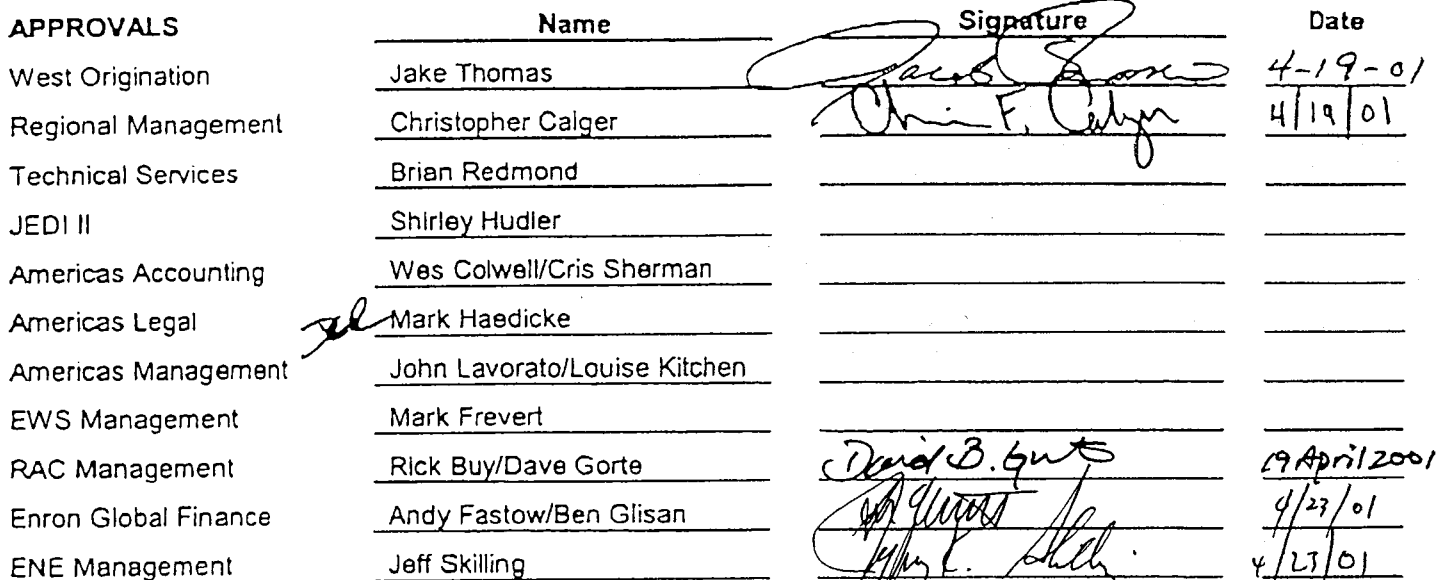 APPROVALS Name Signature Date
West Origination Jake Thomas Jacob 4-19-01
Regional Management Christopher Calger Chris F. Calger 4/19/01
Technical Services Brian Redmond
JEDI II Shirley Hudler
Americas Accounting Wes Colwell/Cris Sherman
Americas Legal Mark Haedicke
Americas Management John Lavorato/Louise Kitchen
EWS Management Mark Frevert
RAC Management Rick Buy/Dave Gorte David B. Gorte 19 April 2001
Enron Global Finance Andy Fastow/Ben Glisan 4/23/01
ENE Management Jeff Skilling Jeffrey K. Skilling 4/23/01